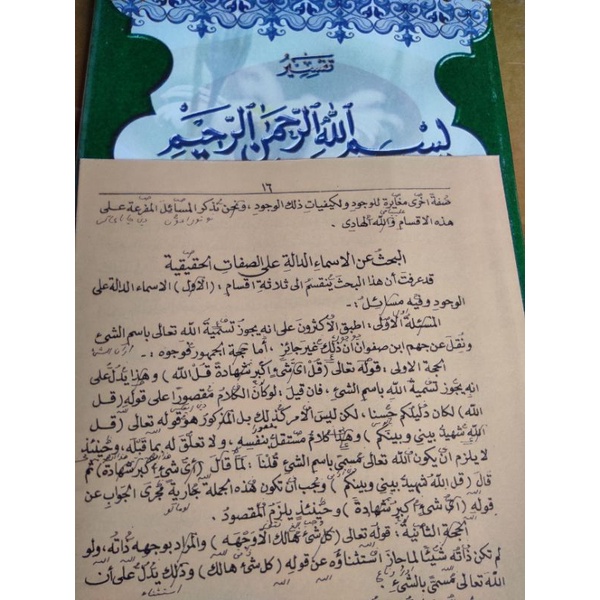 تفسير
بسم الله الرحمن الرحيم
١٦
صفة أخرى مغايرة للوجود ولكيفيات ذلك الوجود ، ونحن نذكر المسائل المفرعة على
هذه الاقسام والله الهادى .
البحث عن الاسماء الدالة على الصفات الحقيقية
قد عرفت أن هذا البحث ينقسم الى ثلاثة اقسام : (الأول) الاسماء الدالة على
الوجود وفيه مسائل : -
المسئلة الأولى : اطبق الأكثرون على انه يجوز تسمية الله تعالى باسم الشئ
ونقل عن جهم ابن صفوان أن ذلك غير جائز . أما حجة الجمهور فوجوه : -
الحجة الاولى : قوله تعالى (قل أى شئ اكبر شهادة قل الله) وهذا يدل على
انه يجوز تسمية الله باسم الشئ ، فان قيل : لوكان الكلام مقصورا على قوله (قل
الله) لكان دليلكم حسنا ، لكن ليس الأمر كذلك بل المذكور هو قوله تعالى (قل
الله شهيد بينى وبينكم) وهذا كلام مستقل بنفسه ، ولا تعلق له بما قبله ، وحينئذ
لا يلزم ان يكون الله تعالى مسمى باسم الشئ قلنا : لما قال (أى شئ أكبر شهادة) ثم
قال (قل الله شهيد بينى وبينكم) وجب أن تكون هذه الجملة جارية مجرى الجواب عن
قوله (اى شئ اكبر شهادة) وحينئذ يلزم المقصود .
الحجة الثانية : قوله تعالى (كل شئ هالك الا وجهه) والمراد بوجهه ذاته ، ولو
لم تكن ذاته شيئا لما جاز استثناؤه عن قوله (كل شئ هالك) وذلك يدل على أن
الله تعالى مسمى بالشئ .